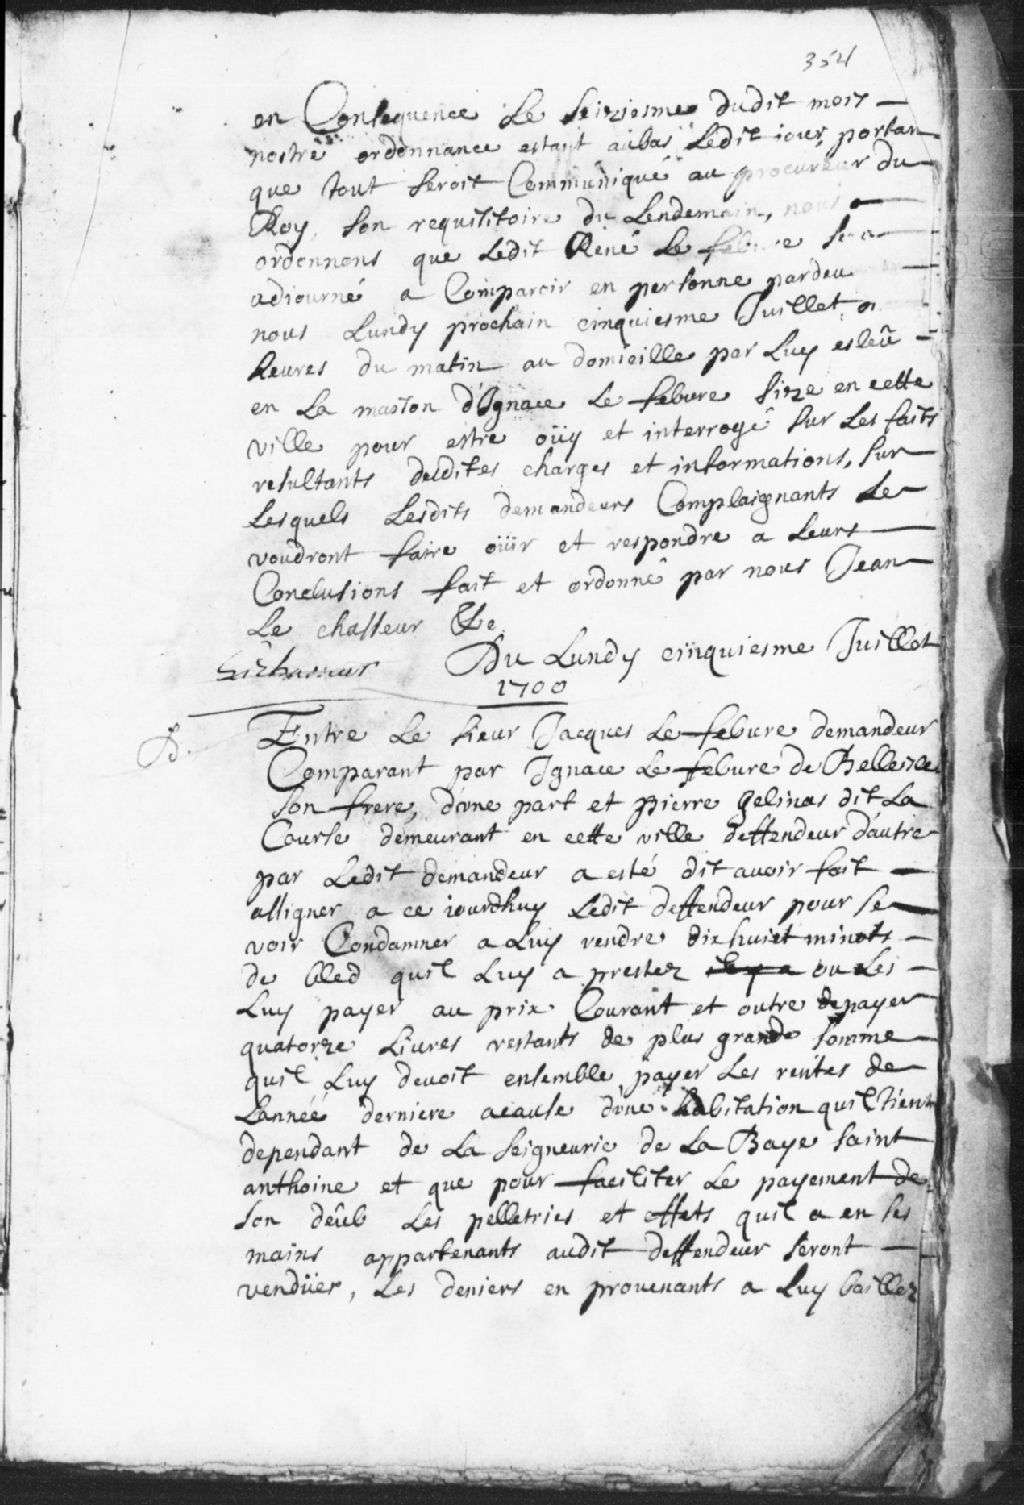 354
en Consequence Le seiziesme dudit mois
nostre ordonnance estant aubas Ledit iour, portan
que tout seroit Communiqué au procureur du
Roy, son requisitoire du Lendemain, nous
ordonnons que Ledit René Le febvre sera
adiourné a Comparoir en personne pardeu
nous Lundy prochain cinquiesme Juillet a
heures du matin au domicille par Luy esleû
en La maison d'Ignace Le febvre size en cette
ville pour estre oüy et interrogé sur Les faits
resultants desdites charges et informations, sur
Lesquels Lesdits demandeurs Complaignants Le
voudront faire oüir et respondre a Leurs
Conclusions fait et ordonné par nous Jean
Le chasseur &c
Du Lundy cinquiesme Juillet
1700
Entre Le sieur Jacques Le febvre demandeur
Comparant par Ignace Le febvre de Belleisle
son frere, d'une part et Pierre Gelinas dit La
Course demeurant en cette ville deffendeur d'autre
par Ledit demandeur a esté dit avoir fait
assigner a ce iourdhuy Ledit deffendeur pour se
voir Condamner a Luy rendre dixhuict minots
de bled quil Luy a prestez ou Les
Luy payer au prix Courant et outre de payer
quatorze Livres restants de plus grande somme
quil Luy devoit ensemble payer Les rentes de
Lannéé derniere acause d'une habitation quil tient
dependant de La Seigneurie de La Baye saint
anthoine et que pour faciliter Le payement de
son deûb Les pelletries et effets quil a en ses
mains appartenants audit deffendeur seront
vendües, Les deniers en provenants a Luy baillez